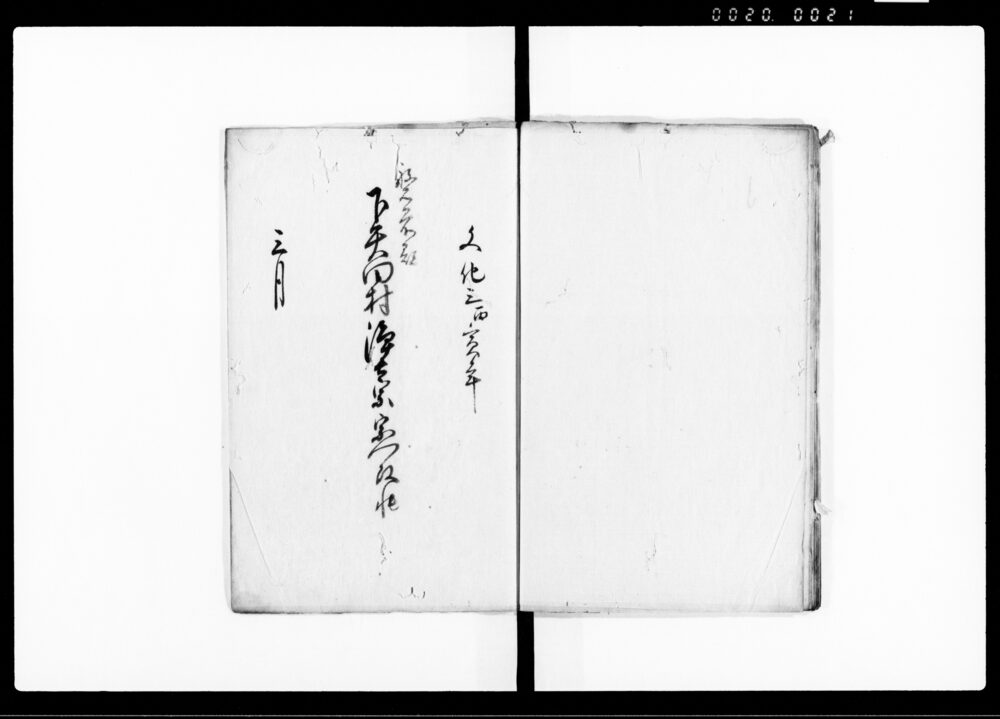 0020. 0021
文化三丙寅年
下矢田村浄土宗宗門改帳
三月